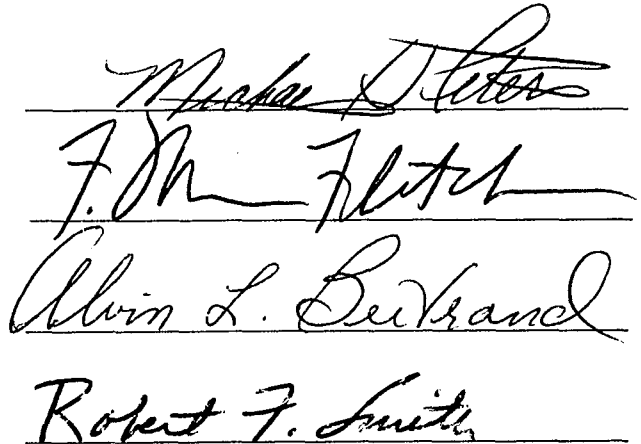 Michael D Peters
F. Fletch
Alvin L. Bertrand
Robert F. Smith